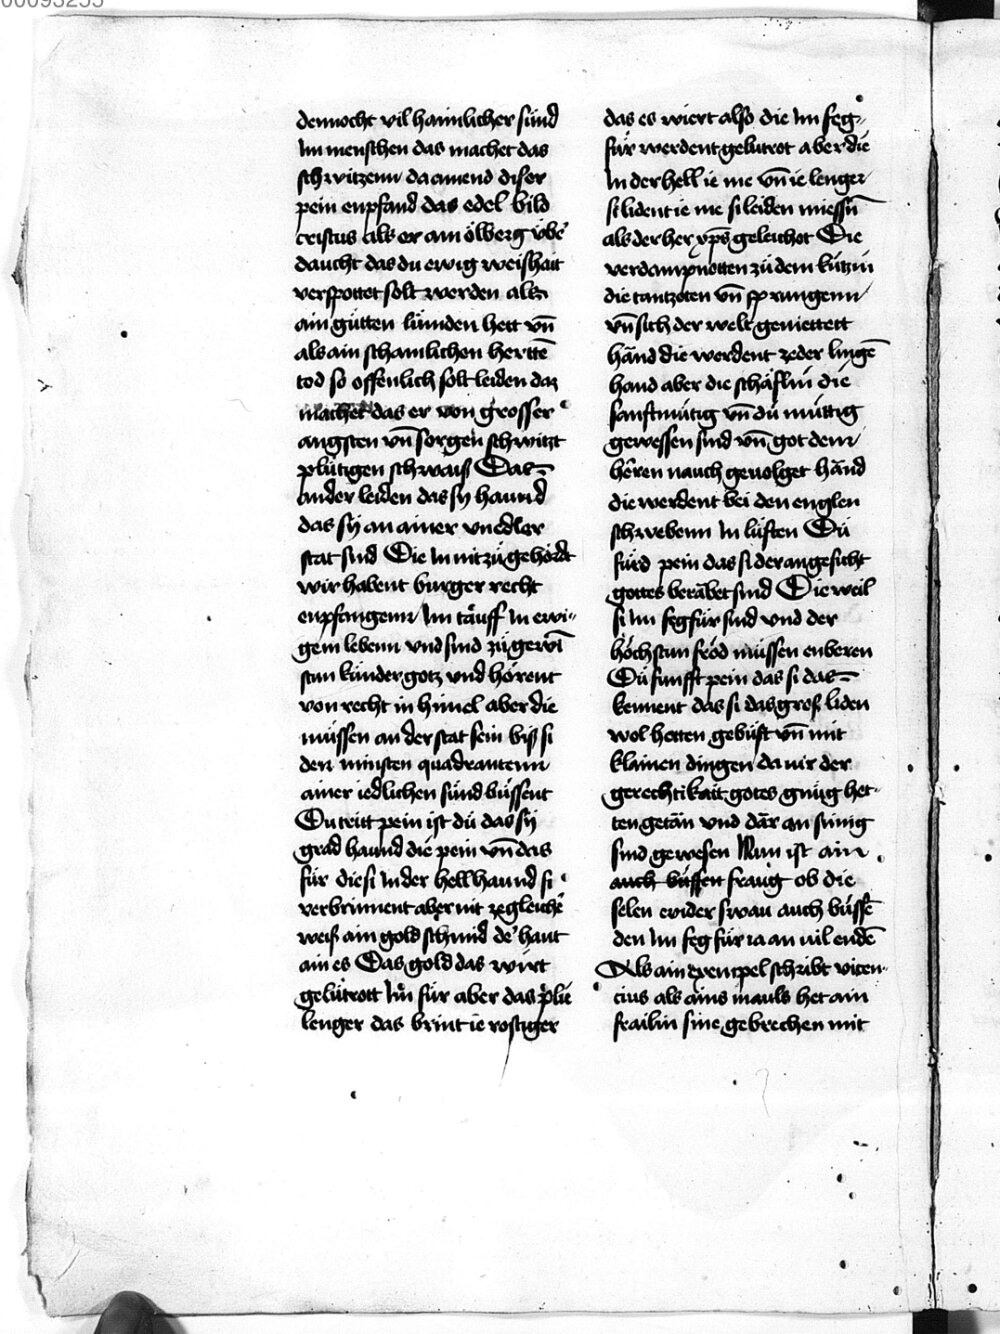 00093255
dennocht vil haimlicher sünd
Im menschen das machet das
schwitzenn da amend diser
pein enpfand das edel bild
cristus als er am ölberg vbe᷒
daucht das du ewig weishait
verspottet solt werden als
ain gütten lümden hett vn̄
als ain schamlichen hertte̅
tod so offenlich solt leiden daz
machet das er von grosser
angsten vn̄ sorgen schwitzt
plütigen schwaiss Das
ander leiden das sy haund
das sy an ainer vnedler
stat sind Die In nit zü gehördt
wir habent burger recht
enpfangenn Im täuff In ewi-
gem lebenn vnd sind zü gewi
stan kinder gotz vnd hörent
von recht in himel aber die
müssen an der stat sein biss si
den minsten quadrantenn
ainer iedlichen sünd büssent
Du tritt pein ist dü das sy
grad haund die pein vn̄ das
für die si In der hell haund si
verbrinnent aber nit ze gleiche̅
weiß ain gold schmid de᷒ haut
ain es Das gold das wirt
gelütrott Im für aber das plü
lenger das brint ie rostiger
das es wiert also die Im feg-
für werdent gelutrot aber die
In der hell ie me vn̄ ie lenger
si lident ie me si leiden miessn̄
als der her xp̄s geleichot Die
verdampnotten zü dem kützin
die tantzoten vn̄ sprungenn
vn̄ sich der welt geniettett
hānd die werdent ze der linge̅
hand aber die schäflin die
sanftmütig vn̄ dü müttig
gewessen sind vn̄ got dem
heren nauch geuolget hānd
die werdent bei den englen
schwebenn In lüften Dü
fürd pein das si der angesicht
gottes beräbet sind Die weil
si Im fegfür sind vnd der
höchstan fröd müssen enberen
Dü funfft pein das si das
kennent das si das groß liden
wol hetten gebüst vn̄ mit
klainen dingen da mir der
gerechtikait gotes gnüg het-
ten getän vnd där an sinig
sind gewesen Nun ist ain
auch büssen fraug ob die
selen ender swau auch büsse̅
den Im fegfür ia an uil ende̅
Als ain exempel schribt vicen-
cius als ains mauls het ain
frailin sine gebrechen mit